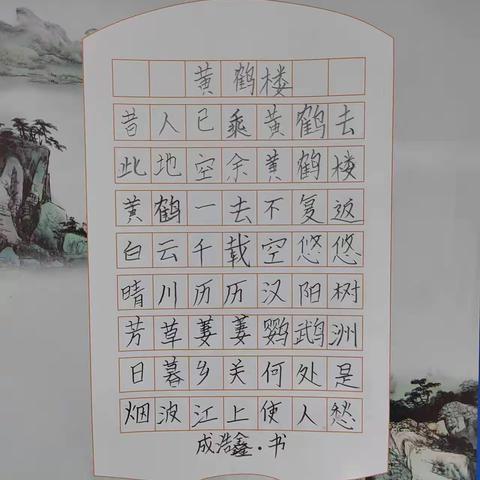 黄鹤楼
昔人已乘黄鹤去
此地空余黄鹤楼
黄鹤一去不复返
白云千载空悠悠
晴川历历汉阳树
芳草萋萋鹦鹉洲
日暮乡关何处是
烟波江上使人愁
成浩鑫·书